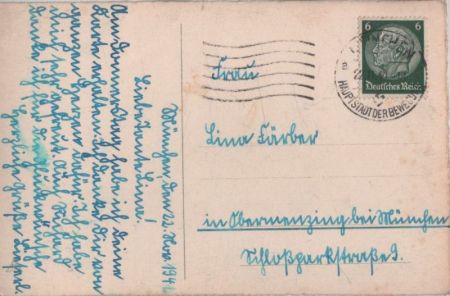 München, den 22. Nov. 194
Liebe Tante Lina!
Am Donnerstag habe ich deine
Karte erhalten. Ich danke dir von
ganzem Herzen dafür. Ich habe
mich sehr gefreut.
Herzliche Grüße
Frau
Lina Färber
in Obermenzing bei München
Schloßparkstraße
6 6
Deutsches Reich
MÜNCHEN
HAUPTSTADT DER BEWEG